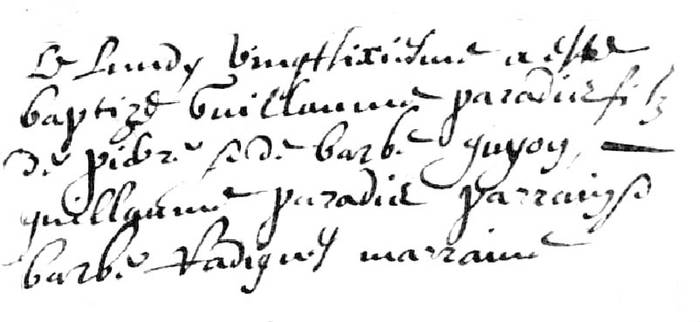 Le Lundy vingtsixiesme a este
baptizé Guillaume paradis filz
de pierre & de barbe guyon,
guillaume paradis parrain &
barbe marraine